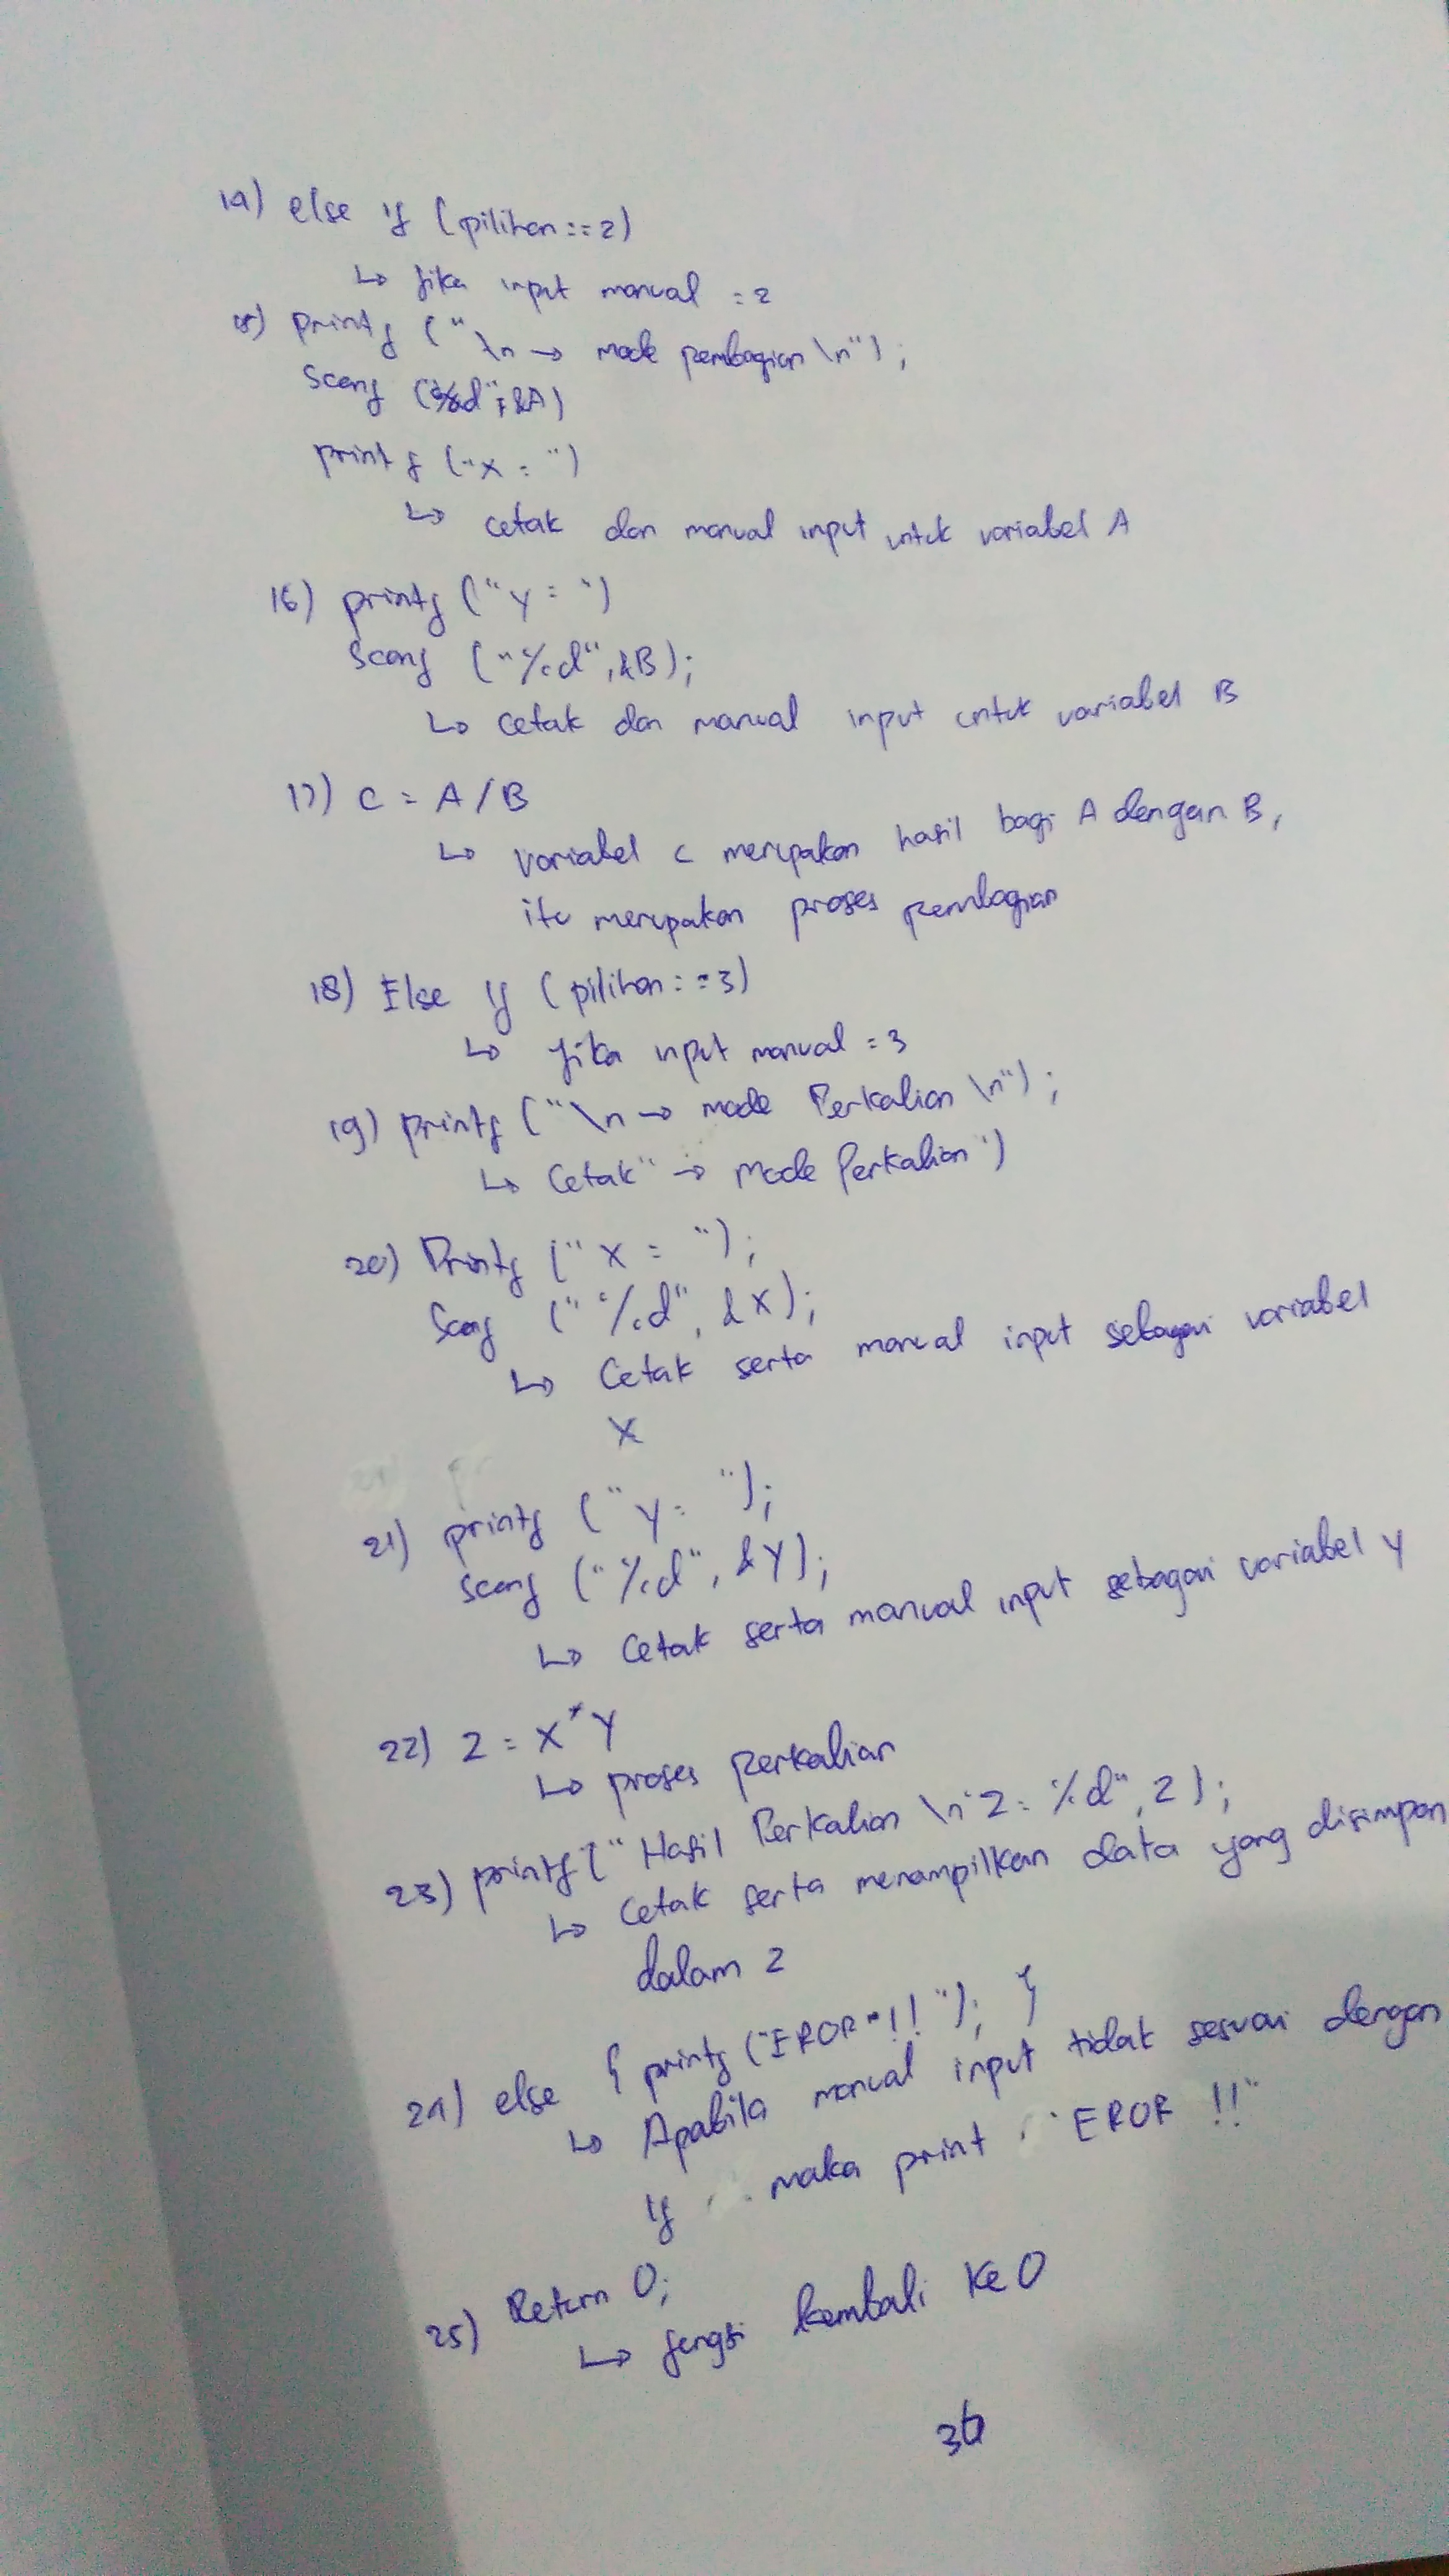 14) else if (pilihan==2)
↳ Jika input manual =2
15) printf ("\n → mode pembagian \n");
Scanf ("%d", &A)
printf ("X = ")
↳ cetak dan manual input untuk variabel A
16) printf ("Y = ")
Scanf ("%d", &B);
↳ Cetak dan manual input untuk variabel B
17) C = A / B
↳ variabel C merupakan hasil bagi A dengan B,
itu merupakan proses pembagian
18) Else if (pilihan==3)
↳ Jika input manual = 3
19) printf ("\n → mode Perkalian \n");
↳ Cetak " → Mode Perkalian")
20) Printf ("X = ");
Scanf ("%d", &X);
↳ Cetak serta manual input sebagai variabel
X
21) printf ("Y = ");
Scanf ("%d", &Y);
↳ Cetak serta manual input sebagai variabel Y
22) Z = X*Y
↳ proses perkalian
23) printf ("Hasil Perkalian \n Z = %d", Z);
↳ Cetak serta menampilkan data yang disimpan
dalam Z
24) else { printf ("EROR !!"); }
↳ Apabila manual input tidak sesuai dengan
If maka print "EROR !!"
25) Return 0;
↳ fungsi kembali ke 0
36